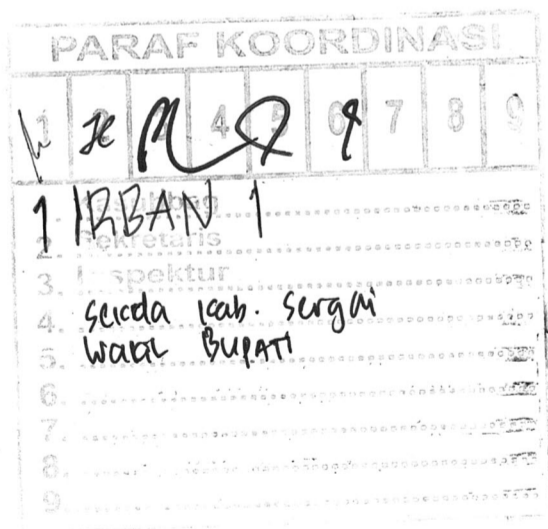 PARAF KOORDINASI
1 4 5 6 7 8 9
1 IRBAN 1
2. Sekretaris
3. Inspektur
4. Sekda kab. Sergai
5. Wakil BUPATI
6.
7.
8.
9.